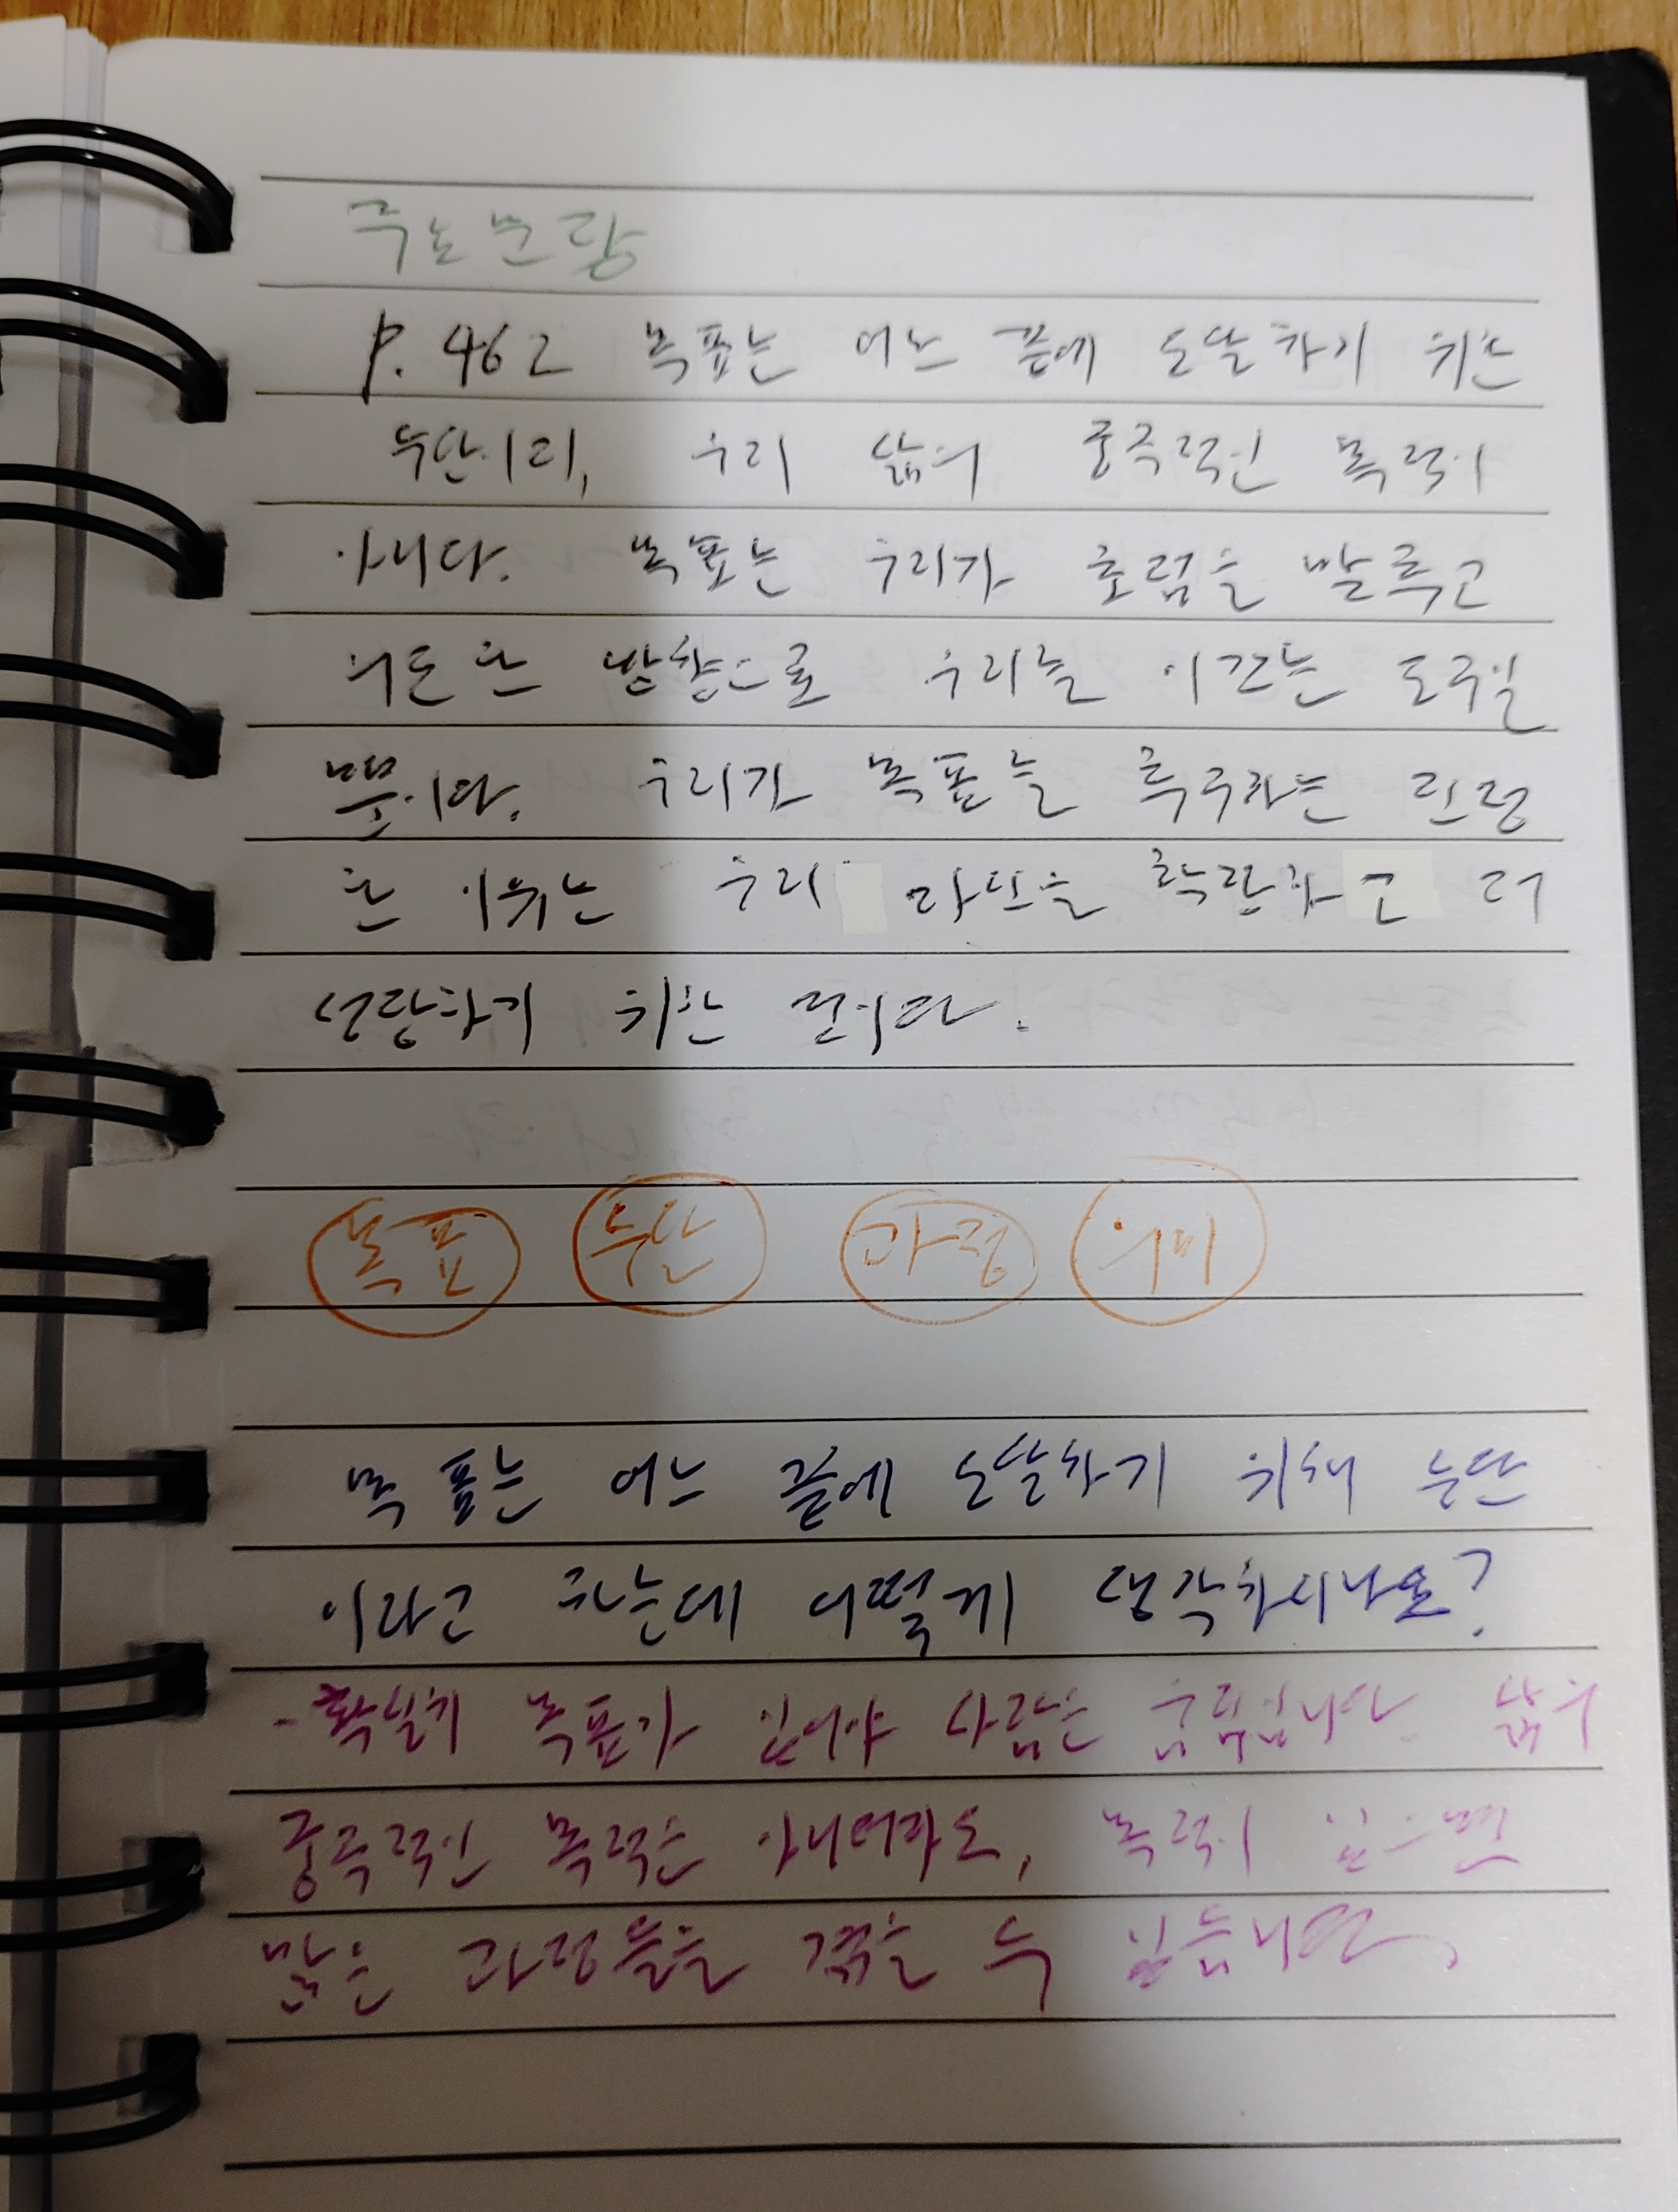 주요문장
p.462 목표는 어느 끝에 도달하기 위한
수단이지, 우리 삶의 궁극적인 목적이
아니다. 목표는 우리가 초점을 맞추고
의도한 방향으로 우리를 이끄는 도구일
뿐이다. 우리가 목표를 추구하는 진정
한 이유는 우리 자신을 확장하고 더
성장하기 위한 것이다.
목표 수단 과정 의미
목표는 어느 끝에 도달하기 위해 수단
이라고 하는데 어떻게 생각하시나요?
- 확실히 목표가 있어야 사람은 움직입니다. 삶의
궁극적인 목적은 아니더라도, 목적이 있으면
많은 과정들을 겪을 수 있습니다.